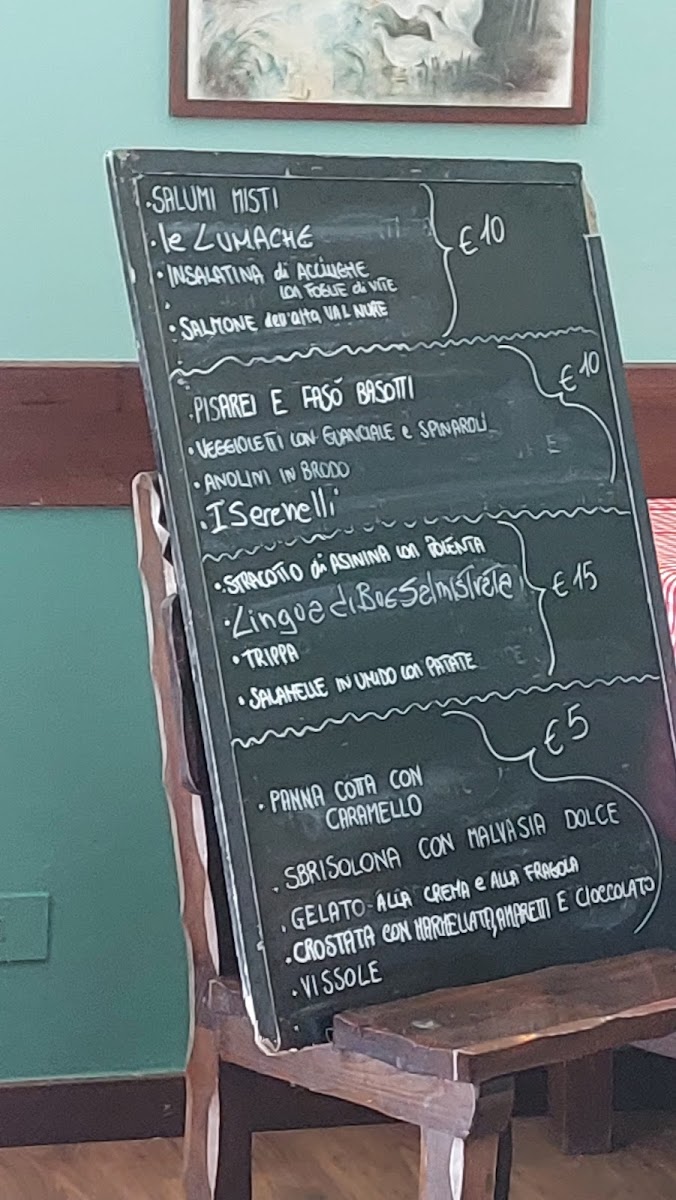 ·SALUMI MISTI
·le LUMACHE
€10
·INSALATINA di ACCIUGHE
con FOGLIE di VITE
·SALMONE dell'alta VAL NURE
·PISAREI E FASÒ BASOTTI
€10
·VEGGIOLETTI CON GUANCIALE e SPINAROLI
·ANOLINI IN BRODO
·I Serenelli
·STRACOTTO di ASININA con POLENTA
·Lingua di Bue Salmistrata
€15
·TRIPPA
·SALAMELLE IN UMIDO con PATATE
€5
·PANNA COTTA CON
CARAMELLO
·SBRISOLONA CON MALVASIA DOLCE
·GELATO ALLA CREMA e ALLA FRAGOLA
·CROSTATA CON MARMELLATA, AMARETTI E CIOCCOLATO
·VISSOLE